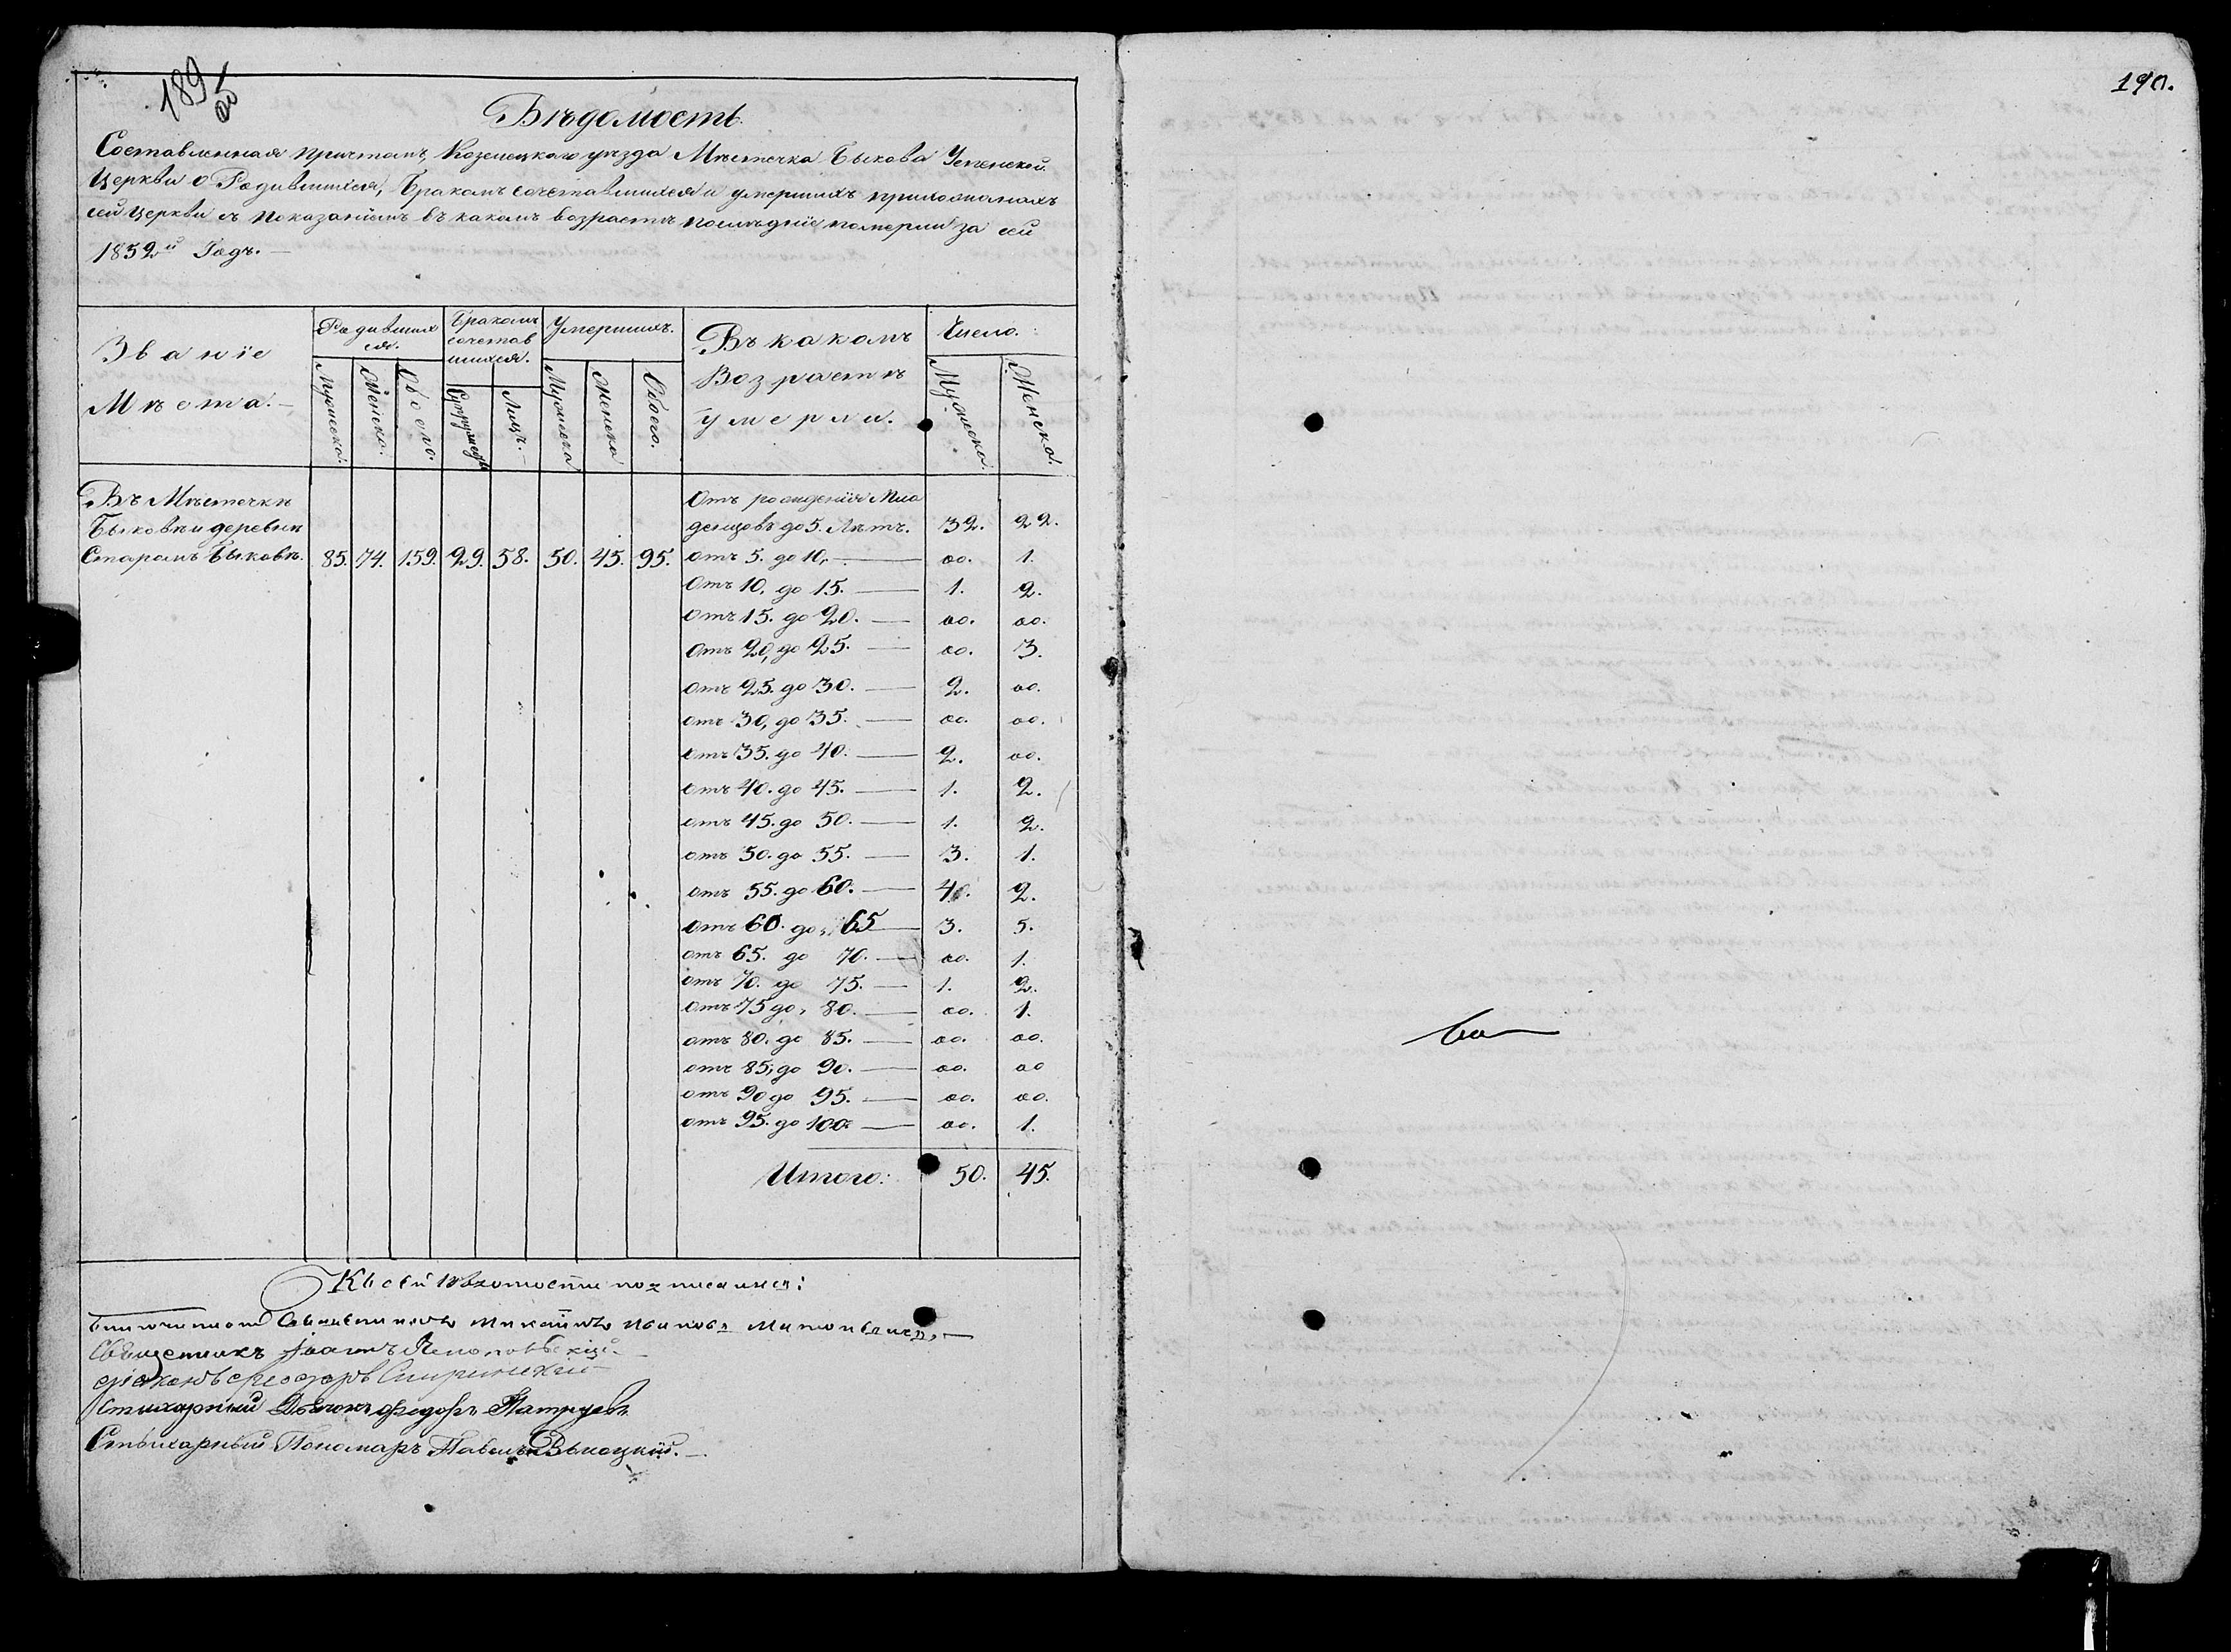 189
об
190.
Вѣдомость
Составленная причтомъ, Козелецкаго уѣзда Мѣстечка Быкова Успенской
Церкви о Родившихся, Бракомъ сочетавшихся и умершихъ прихожанахъ
сей Церкви съ показаніемъ въ какомъ возрастѣ послѣдніе померли за сей
1852й Годъ.—
Званіе
Мѣста.—
Родивших
ся.
Бракомъ
сочетав
шихся.
Умершихъ.
Въ какомъ
Возрастѣ
умерли.
Число.
Мужеска.
Женска.
Обоего.
Супружествъ
Лицъ.—
Мужеска
Женска
Обоего.
Мужеска.
Женска.
Въ Мѣстечкѣ
Быковѣ и деревнѣ
Старомъ Быковѣ. 85. 74. 159. 29. 58. 50. 45. 95.
Отъ рожденія Мла
денцовъ до 5. Лѣтъ. 32. 22.
отъ 5. до 10,— оо. 1.
Отъ 10, до 15.— 1. 2.
Отъ 15. до 20.— оо. оо.
Отъ 20, до 25.— оо. 3.
отъ 25. до 30.— 2. оо.
отъ 30, до 35.— оо. оо.
отъ 35. до 40.— 2. оо.
отъ 40. до 45.— 1. 2.
отъ 45. до 50.— 1. 2.
отъ 50. до 55.— 3. 1.
отъ 55. до 60.— 4. 2.
отъ 60. до 65— 3. 5.
отъ 65. до 70.— оо. 1.
отъ 70. до 75.— 1. 2.
отъ 75 до 80.— оо. 1.
отъ 80. до 85.— оо. оо.
отъ 85, до 90.— оо. оо
отъ 90 до 95.— оо. оо.
отъ 95. до 100.— оо. 1.
Итого: 50. 45.
Къ сей вѣдомости подписались:
Священникъ
Священникъ Іоаннъ
Діаконъ Феодоръ
Стихарный Дьячокъ Федоръ
Стихарный Пономарь Павелъ Высоцкій.—